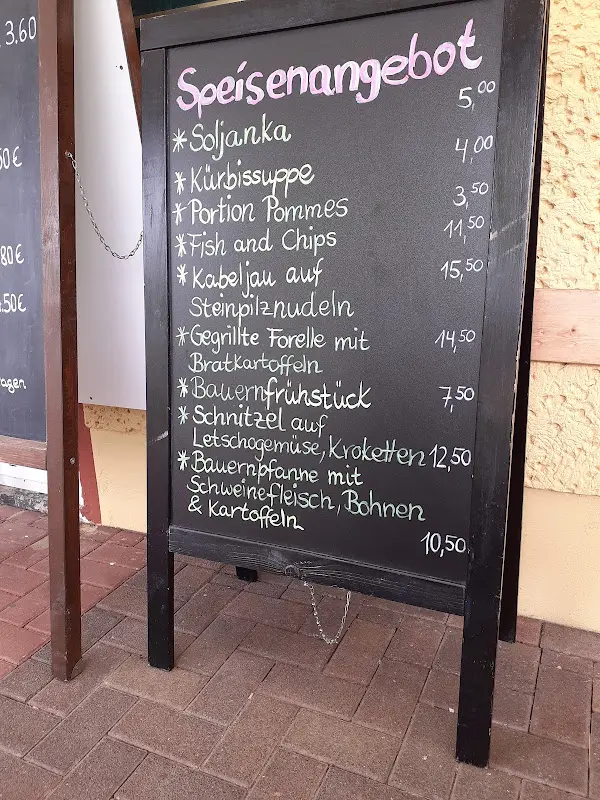 3,60
50€
80€
.50€
ragen
Speisenangebot
*Soljanka 5,00
*Kürbissuppe 4,00
*Portion Pommes 3,50
*Fish and Chips 11,50
*Kabeljau auf 15,50
Steinpilznudeln
*Gegrillte Forelle mit 14,50
Bratkartoffeln
*Bauernfrühstück 7,50
*Schnitzel auf
Letschogemüse, Kroketten 12,50
*Bauernpfanne mit
Schweinefleisch, Bohnen
& Kartoffeln
10,50